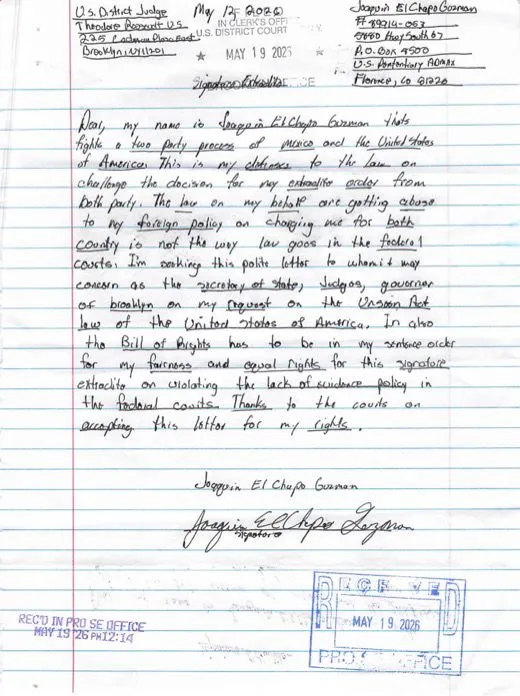 U.S. District Judge
Theodore Roosevelt U.S.
225 Cadman Plaza East
Brooklyn NY 11201
May 12, 2026
IN CLERK'S OFF
U.S. DISTRICT COURT
★ MAY 19 2026 ★
Joaquin El Chapo Guzman
# 89914-053
5880 Hwy South 67
P.O. Box 8500
U.S. Penitentiary ADMAX
Florence, CO 81226
Signature Extradite
Dear, my name is Joaquin El Chapo Guzman thats
fights a two party process of mexico and the United States
of America. This is my defenses to the law on
challenge the decision for my extradite order from
both party. The law on my behalf are getting abuse
to my foreign policy on charging me for both
country is not the way law goes in the federal
courts. I'm seeking this polite letter to whom it may
concern as the secretary of state, Judges, governor
of brooklyn on my request on the Act
law of the United States of America. In also
the Bill of Rights has to be in my sentence order
for my fairness and equal rights for this signature
extradite on violating the lack of evidence policy in
the federal courts. Thanks to the courts on
accepting this letter for my rights.
Joaquin El Chapo Guzman
Joaquin El Chapo Guzman
signature
REC'D IN PRO SE OFFICE
MAY 19 '26 PM 12:14
RECEIVED
MAY 19 2026
PRO SE OFFICE